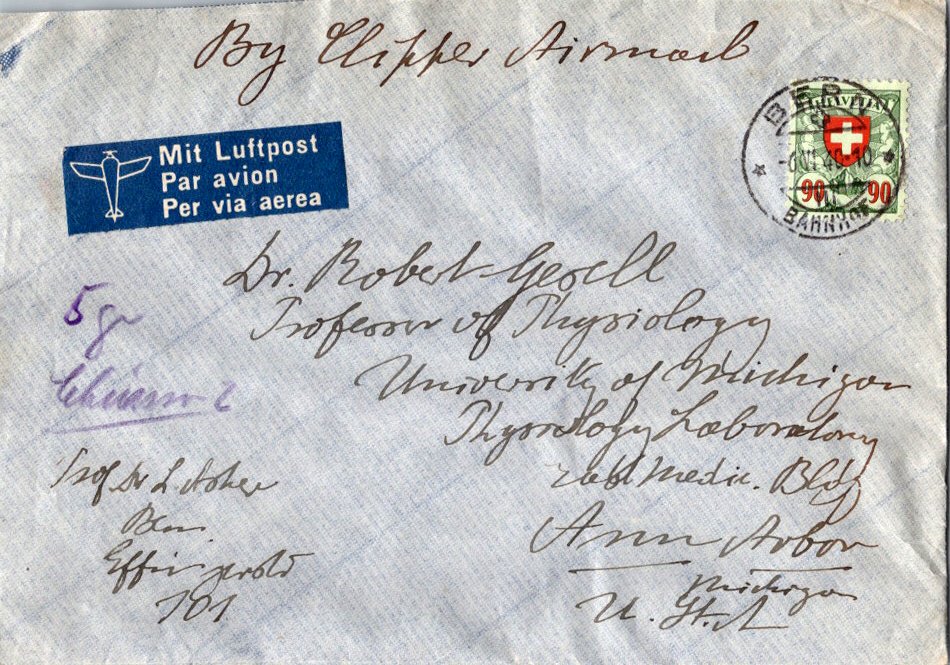 By Clipper Airmail
BERN
HELVETIA
90 90
BAHNHOF
Mit Luftpost
Par avion
Per via aerea
Dr. Robert Gesell
Professor of Physiology
University of Michigan
Physiology Laboratory
Medic. Bldg
Ann Arbor
Michigan
U. St. A
5 gr
Prof Dr L Asher
Bern
101